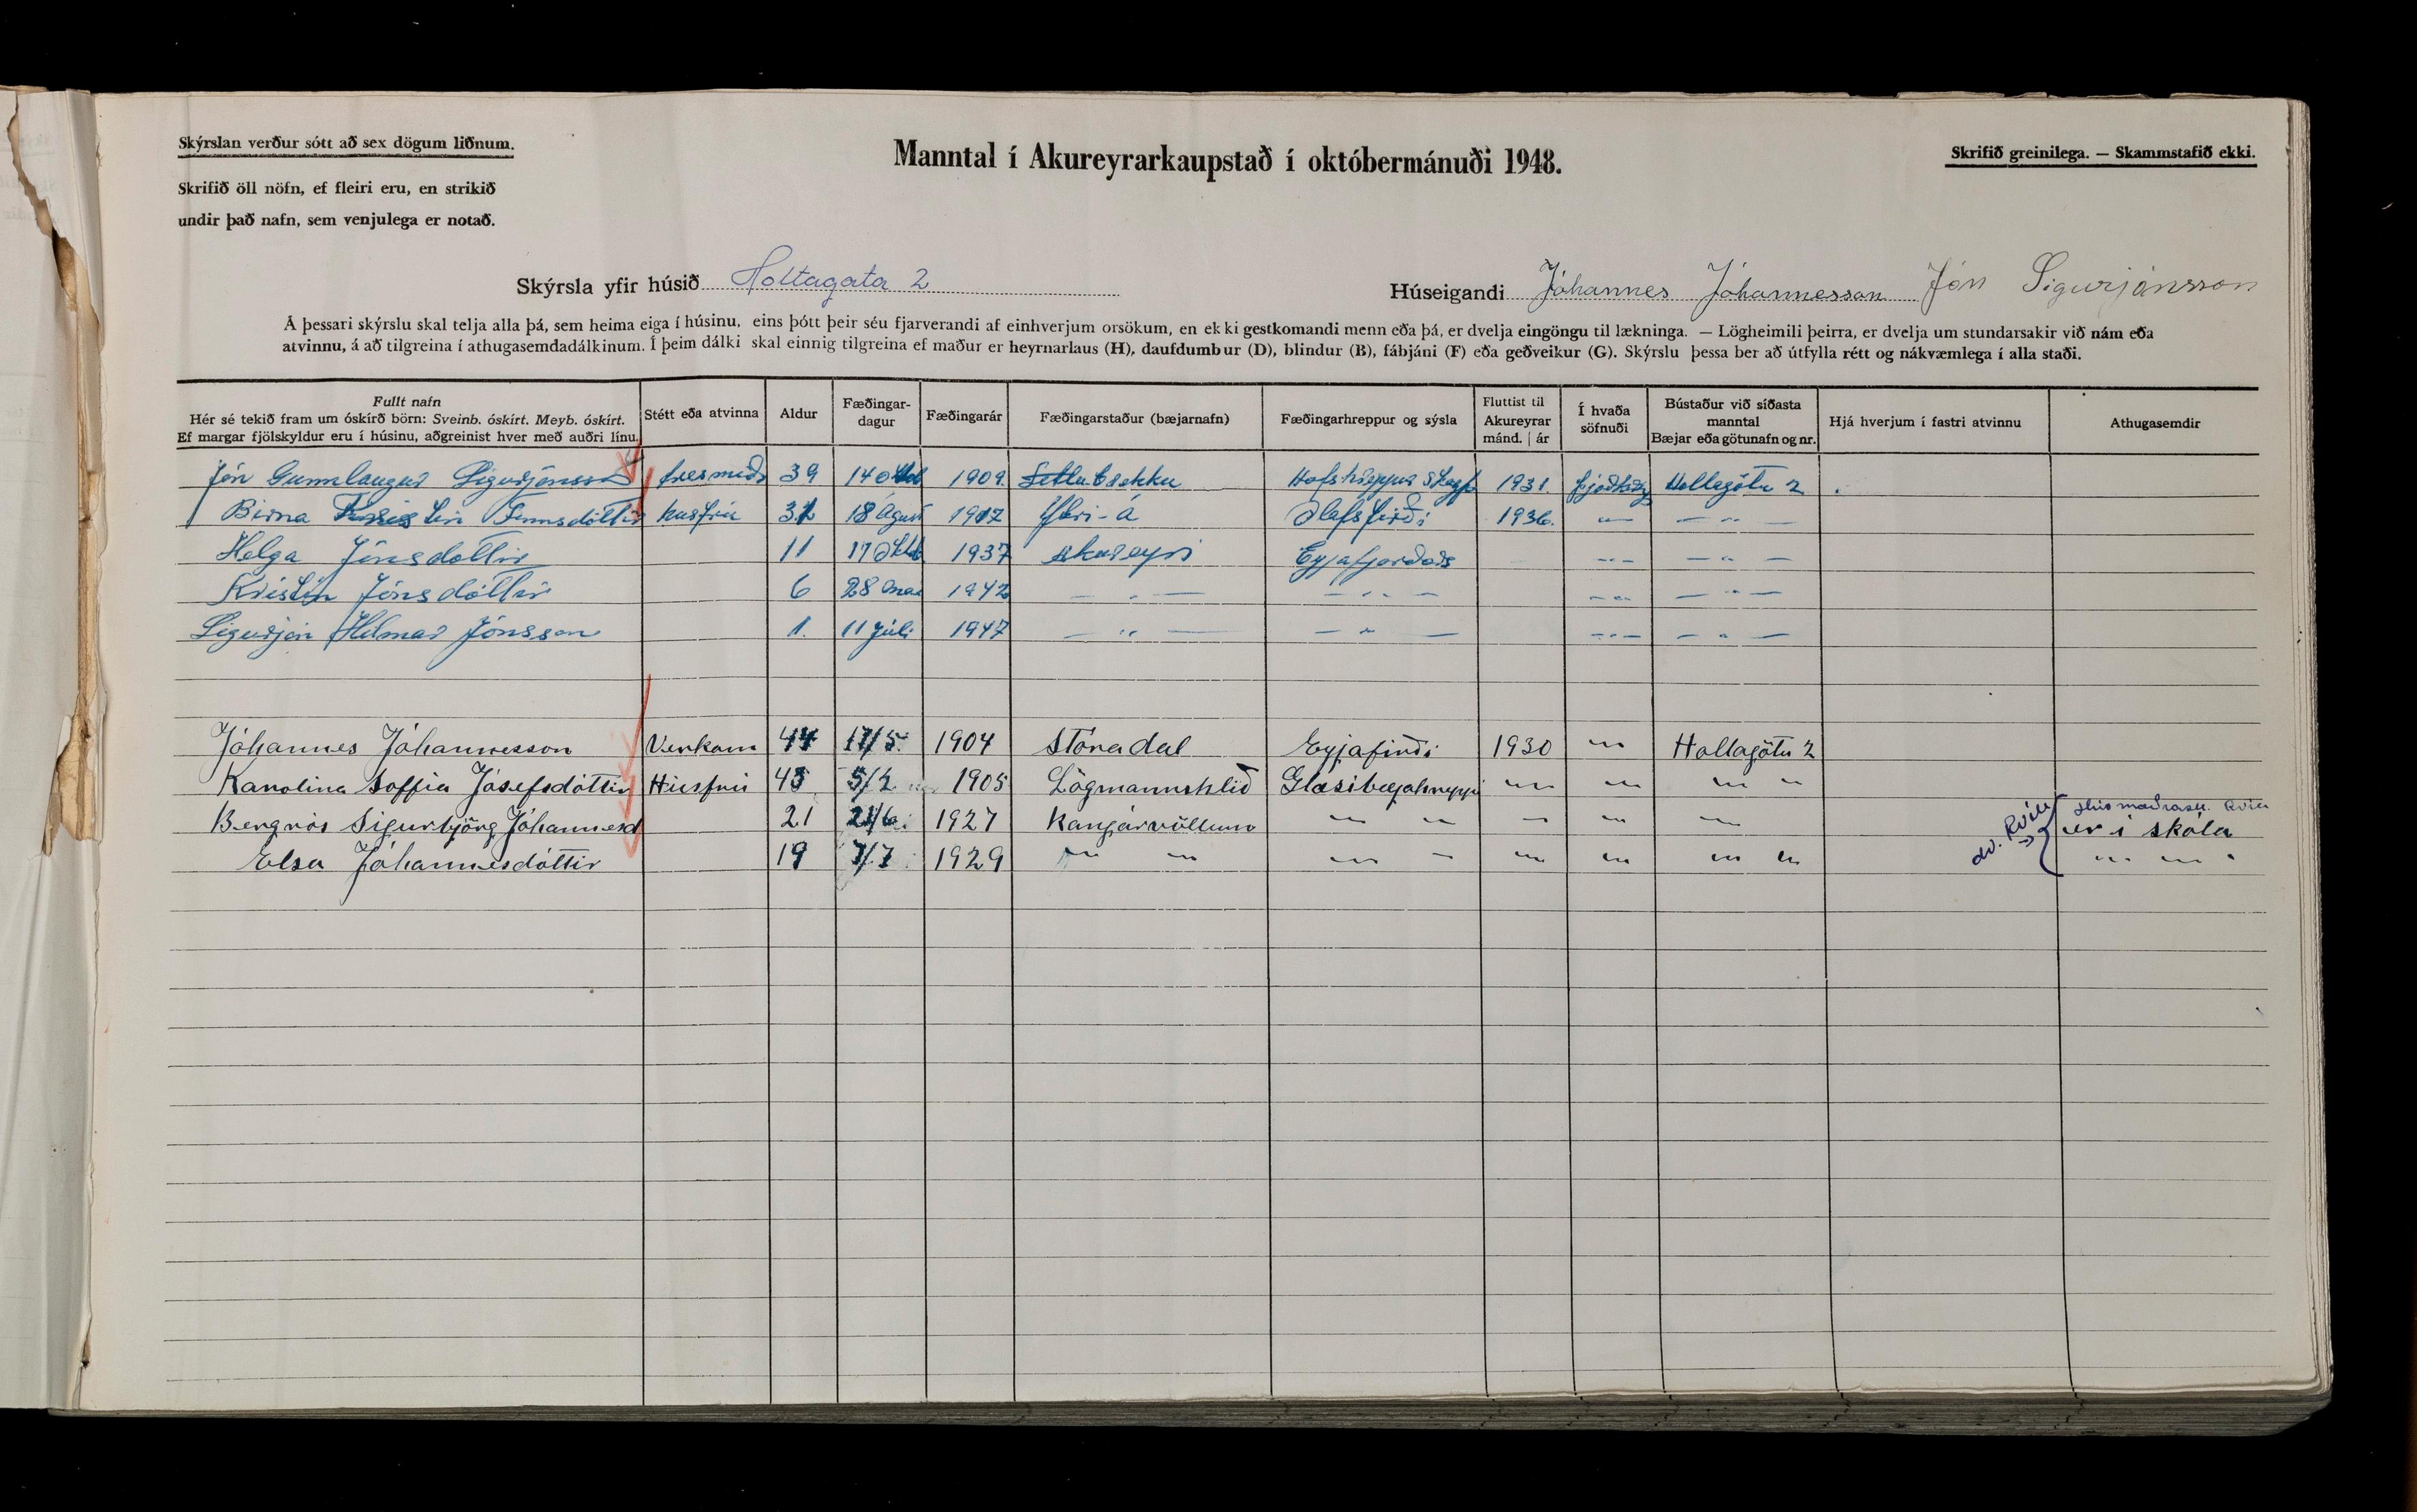 Skýrslan verður sótt að sex dögum liðnum.
Manntal í Akureyrarkaupstað í októbermánuði 1948.
Skrifið greinilega. — Skammstafið ekki.
Skrifið öll nöfn, ef fleiri eru, en strikið
undir það nafn, sem venjulega er notað.
Skýrsla yfir húsið Holtagata 2
Húseigandi Jóhannes Jóhannesson Jón Sigurjónsson
Á þessari skýrslu skal telja alla þá, sem heima eiga í húsinu, eins þótt þeir séu fjarverandi af einhverjum orsökum, en ekki gestkomandi menn eða þá, er dvelja eingöngu til lækninga. — Lögheimili þeirra, er dvelja um stundarsakir við nám eða
atvinnu, á að tilgreina í athugasemdadálkinum. Í þeim dálki skal einnig tilgreina ef maður er heyrnarlaus (H), daufdumbur (D), blindur (B), fábjáni (F) eða geðveikur (G). Skýrslu þessa ber að útfylla rétt og nákvæmlega í alla staði.
Fullt nafn
Hér sé tekið fram um óskírð börn: Sveinb. óskírt. Meyb. óskírt.
Ef margar fjölskyldur eru í húsinu, aðgreinist hver með auðri línu.
Stétt eða atvinna
Aldur
Fæðingar-
dagur
Fæðingarár
Fæðingarstaður (bæjarnafn)
Fæðingarhreppur og sýsla
Fluttist til
Akureyrar
mánd. | ár
Í hvaða
söfnuði
Bústaður við síðasta
manntal
Bæjar eða götunafn og nr.
Hjá hverjum í fastri atvinnu
Athugasemdir
Jón Gunnlaugur Sigurjónsson tresmiðr 39 14 okt 1909 Hofshreppur Skagf 1931. Holtagötu 2
Birna Finnsdóttir husfrú 31 18 águst 1917 Ytri-á Olafsfirði 1936. — " — — " —
Helga Jónsdottir 11 17 okt 1937 Akureyri Eyjafjarðars — " — — " —
Kristín Jónsdóttir 6 28 mai 1942 — " — — " — — " — — " —
Sigurjón Hilmar Jónsson 1. 11 Júli 1947 — " — — " — — " — — " —
Jóhannes Jóhannesson Verkam 44 17/5 1904 Stóradal Eyjafirði 1930 — " — Holtagötu 2
Karolina Soffia Jósefsdóttir Húsfrú 43 5/2 1905 Lögmannshlið Glæsibæjahreppi — " — — " — — " — "
Bergrós Sigurbjörg Jóhannesd 21 21/6 1927 Kangárvöllum — " — " — " — — " — — " — er í skóla
Elsa Jóhannesdóttir 19 7/7 1929 — " — " — " — " — " — — " — — " — " — " — "
dv. Rvík